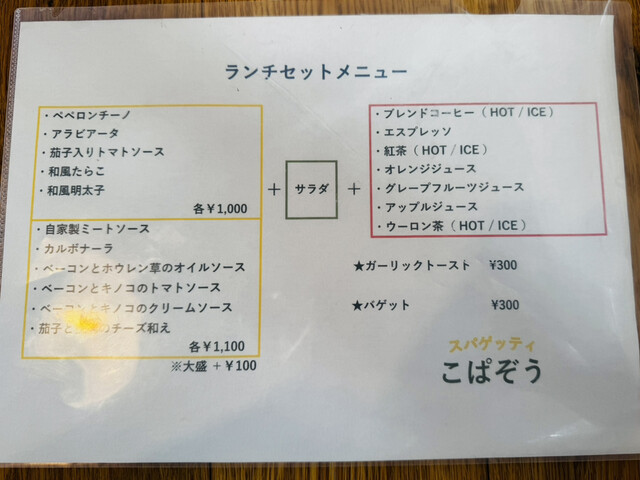 ランチセットメニュー
・ペペロンチーノ
・アラビアータ
・茄子入りトマトソース
・和風たらこ
・和風明太子
各¥1,000
・自家製ミートソース
・カルボナーラ
・ベーコンとホウレン草のオイルソース
・ベーコンとキノコのトマトソース
・ベーコンとキノコのクリームソース
・茄子と のチーズ和え
各¥1,100
※大盛 +¥100
+
サラダ
+
・ブレンドコーヒー（HOT / ICE）
・エスプレッソ
・紅茶（HOT / ICE）
・オレンジジュース
・グレープフルーツジュース
・アップルジュース
・ウーロン茶（HOT / ICE）
★ガーリックトースト ¥300
★バゲット ¥300
スパゲッティ
こぱぞう